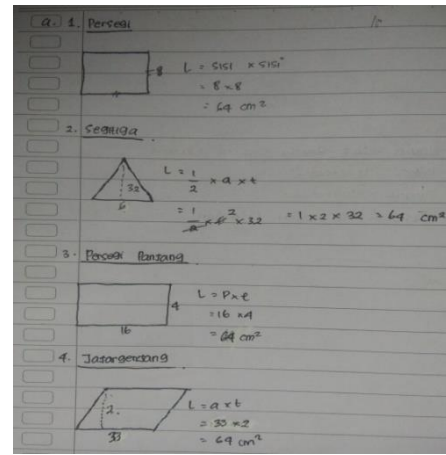 a. 1. Persegi
8
L = sisi x sisi
= 8 x 8
= 64 cm²
2. Segitiga
32
6
L = 1/2 x a x t
= 1/2 x 4 2 x 32 = 1 x 2 x 32 = 64 cm²
3. Persegi Panjang
4
16
L = P x l
= 16 x 4
= 64 cm²
4. Jajargendang
2
33
L = a x t
= 33 x 2
= 64 cm²